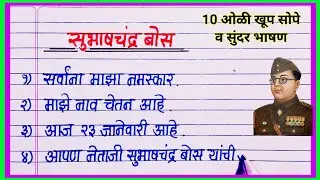 10 ओळी खूप सोपे
व सुंदर भाषण
सुभाषचंद्र बोस
१) सर्वांना माझा नमस्कार.
२) माझे नाव चेतन आहे.
३) आज २३ जानेवारी आहे.
४) आपण नेताजी सुभाषचंद्र बोस यांची